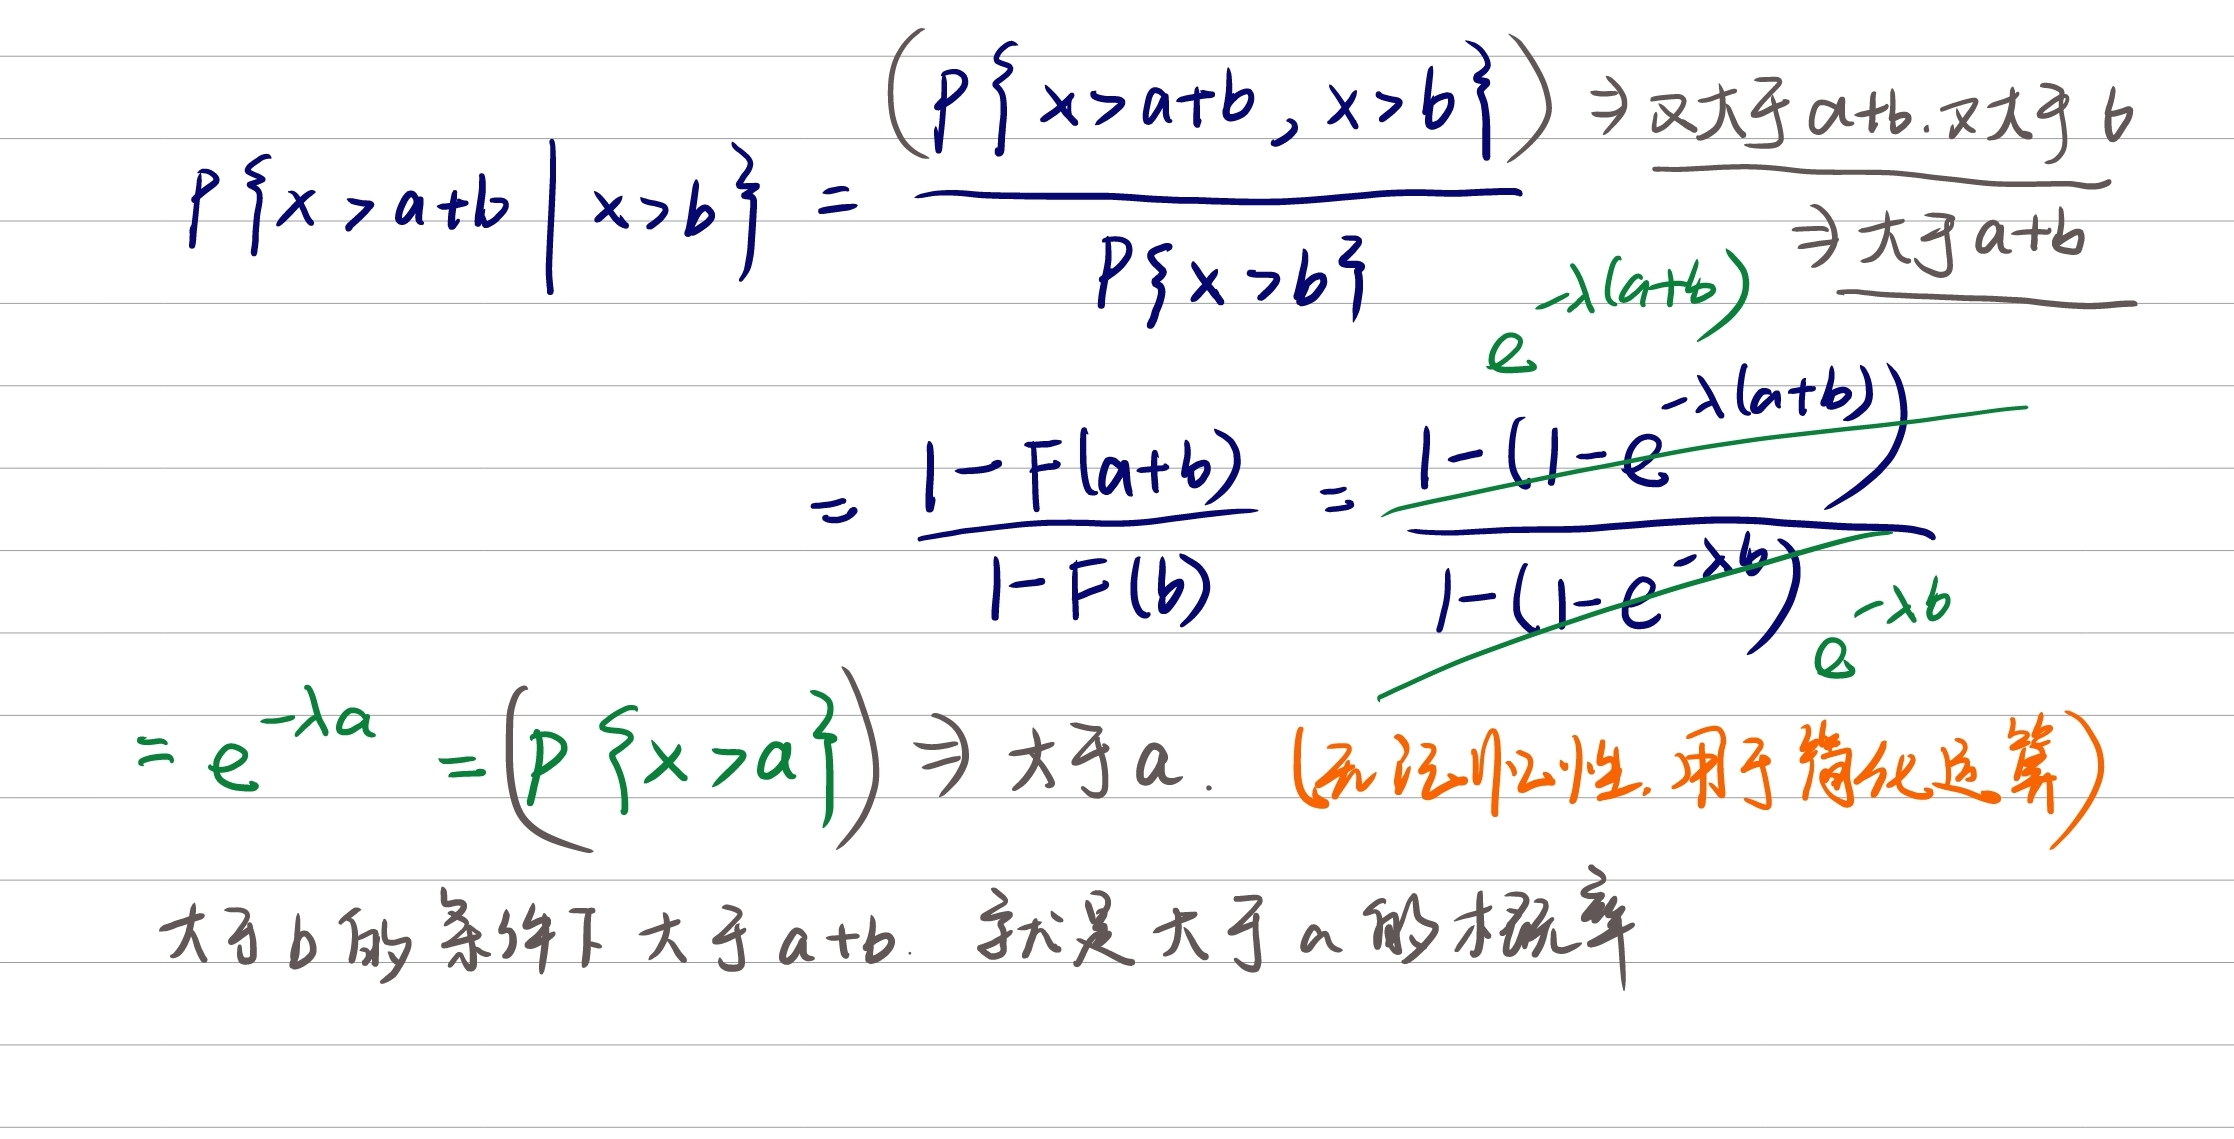 P{x>a+b | x>b} = (P{x>a+b, x>b}) / P{x>b} ⇒ 又大于a+b.又大于b
⇒ 大于a+b
e^{-λ(a+b)}
= (1-F(a+b)) / (1-F(b)) = (1-(1-e^{-λ(a+b)})) / (1-(1-e^{-λb}))
e^{-λb}
= e^{-λa} = (P{x>a}) ⇒ 大于a. (无记忆性.用于简化运算)
大于b的条件下大于a+b. 就是大于a的概率